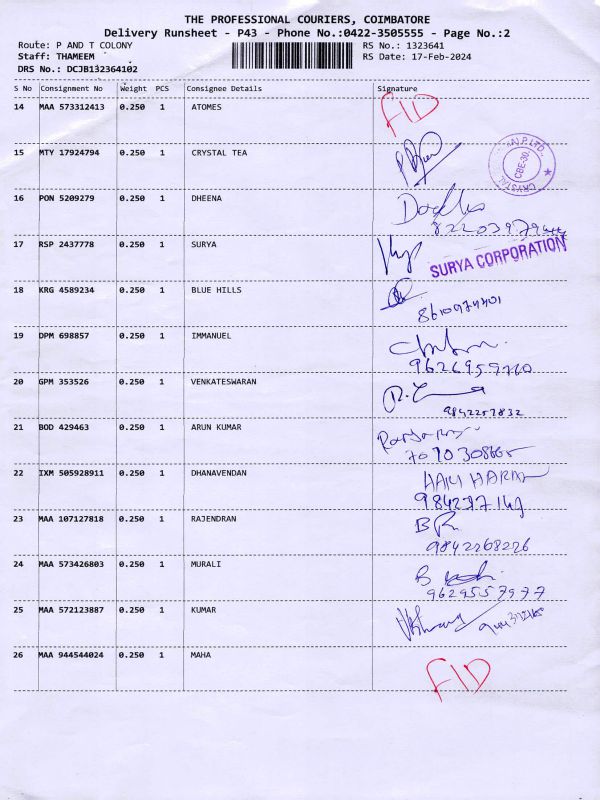 THE PROFESSIONAL COURIERS, COIMBATORE
Delivery Runsheet - P43 - Phone No.:0422-3505555 - Page No.:2
Route: P AND T COLONY RS No.: 1323641
Staff: THAMEEM RS Date: 17-Feb-2024
DRS No.: DCJB132364102
S No Consignment No Weight PCS Consignee Details Signature
14 MAA 573312413 0.250 1 ATOMES FID
15 MTY 17924794 0.250 1 CRYSTAL TEA
CRYSTAL P.LTD. CBE-30.
16 PON 5209279 0.250 1 DHEENA
17 RSP 2437778 0.250 1 SURYA SURYA CORPORATION
18 KRG 4589234 0.250 1 BLUE HILLS
19 DPM 698857 0.250 1 IMMANUEL
9626959760
20 GPM 353526 0.250 1 VENKATESWARAN
9842257832
21 BOD 429463 0.250 1 ARUN KUMAR
22 IXM 505928911 0.250 1 DHANAVENDAN HARI HARAN
23 MAA 107127818 0.250 1 RAJENDRAN
9842268226
24 MAA 573426803 0.250 1 MURALI
9629557977
25 MAA 572123887 0.250 1 KUMAR
26 MAA 944544024 0.250 1 MAHA FID